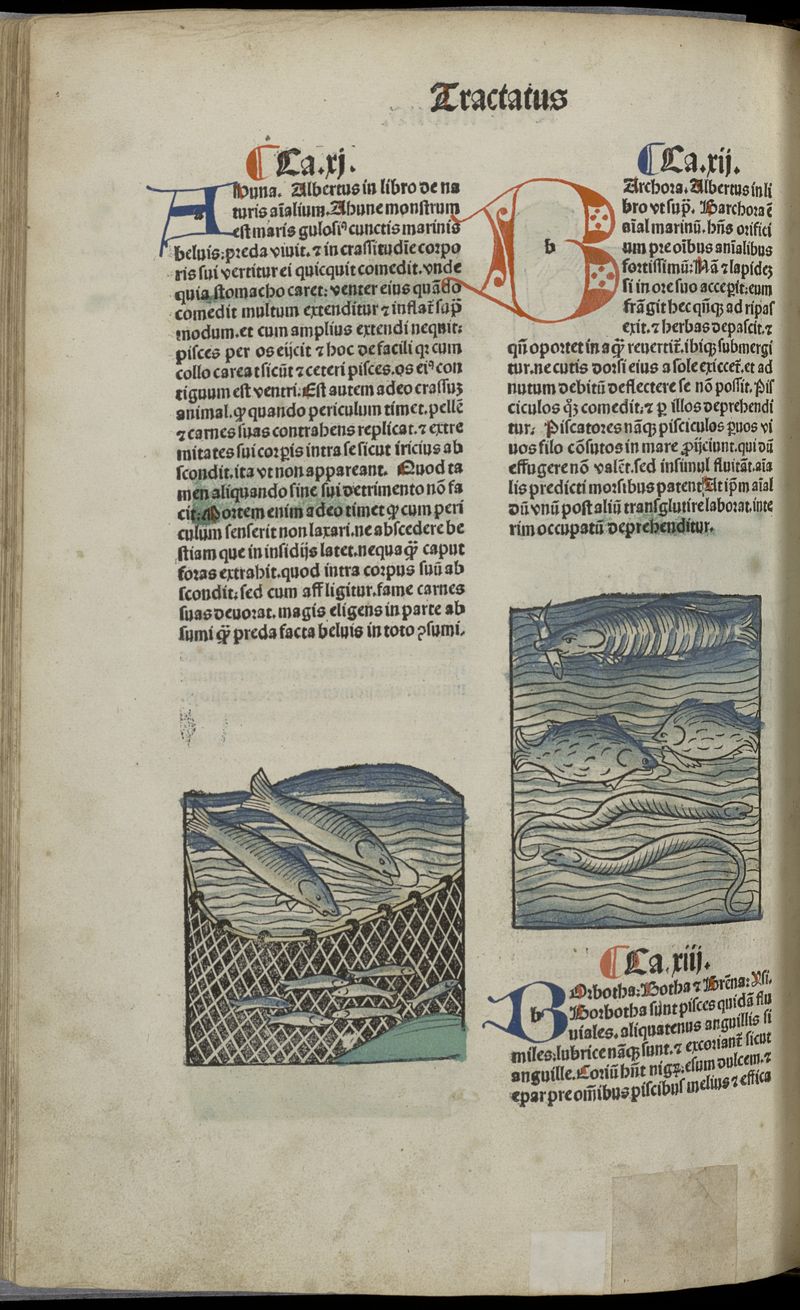 Tractatus
Ca.xj.
Abuna. Albertus in libro de na
turis aĩalium. Ahune monstrum
est maris gulosiꝰ cunctis marinis
beluis: preda viuit. ⁊ in crassitudĩe corpo
ris sui vertitur ei quicquit comedit. vnde
quia stomacho caret: venter eius quãdo
comedit multum extenditur ⁊ inflat̃ sup̃
modum. et cum amplius extendi nequit:
pisces per os eijcit ⁊ hoc de facili qꝛ cum
collo careat sicũt ⁊ ceteri pisces. os eiꝰ con
tiguum est ventri: Est autem adeo crassuꝫ
animal. ꝙ quando periculum timet. pellẽ
⁊ carnes suas contrahens replicat. ⁊ extre
mitates sui corꝑis intra se sicut iricius ab
scondit. ita vt non appareant. Quod ta
men aliquando sine sui detrimento nõ fa
cit: Mortem enim adeo timet ꝙ cum peri
culum senserit non laxari. ne abscedere be
stiam que in insidijs latet. nequaq̃ caput
foras extrahit. quod intra corpus suũ ab
scondit: sed cum affligitur. fame carnes
suas deuorat. magis eligens in parte ab
sumi q̃ preda facta beluis in toto ꝯsumi.
Ca.xij.
b Archora. Albertus in li
bro vt sup̃. Barchora ẽ
aĩal marinũ. hñs orifici
um pre oĩbus anĩalibus
fortissimũ: Nã ⁊ lapideꝫ
si in ore suo acceꝑit: eum
frãgit hec qñqꝫ ad ripas
exit. ⁊ herbas depascit. ⁊
qñ oportet in aq̃ reuertit̃. ibiqꝫ submergi
tur. ne cutis dorsi eius a sole exiccet̃. et ad
nutum debitũ deflectere se nõ possit. Pis
ciculos qꝫ comedit: ⁊ ꝑ illos deprehendi
tur: Piscatores nãqꝫ pisciculos ꝑuos vi
uos filo cõsutos in mare ꝓijciunt. qui dũ
effugere nõ valẽt. sed insimul fluitãt. aĩa
lis predicti morsibus patent. At ip̃m aĩal
dũ vnũ post aliũ transglutire laborat. inte
rim occupatũ deprehenditur.
Ca.xiij.
b Orbotha: Botha ⁊ Brẽna: Ysi.
Borbotha sũnt pisces quidã flu
uiales. aliquatenus anguillis si
miles: lubrice nãqꝫ sunt. ⁊ excoriant̃ sicut
anguille. Coriũ hñt nigꝝ: esum dulcem. ⁊
epar pre oĩnibus piscibus melius ⁊ effica